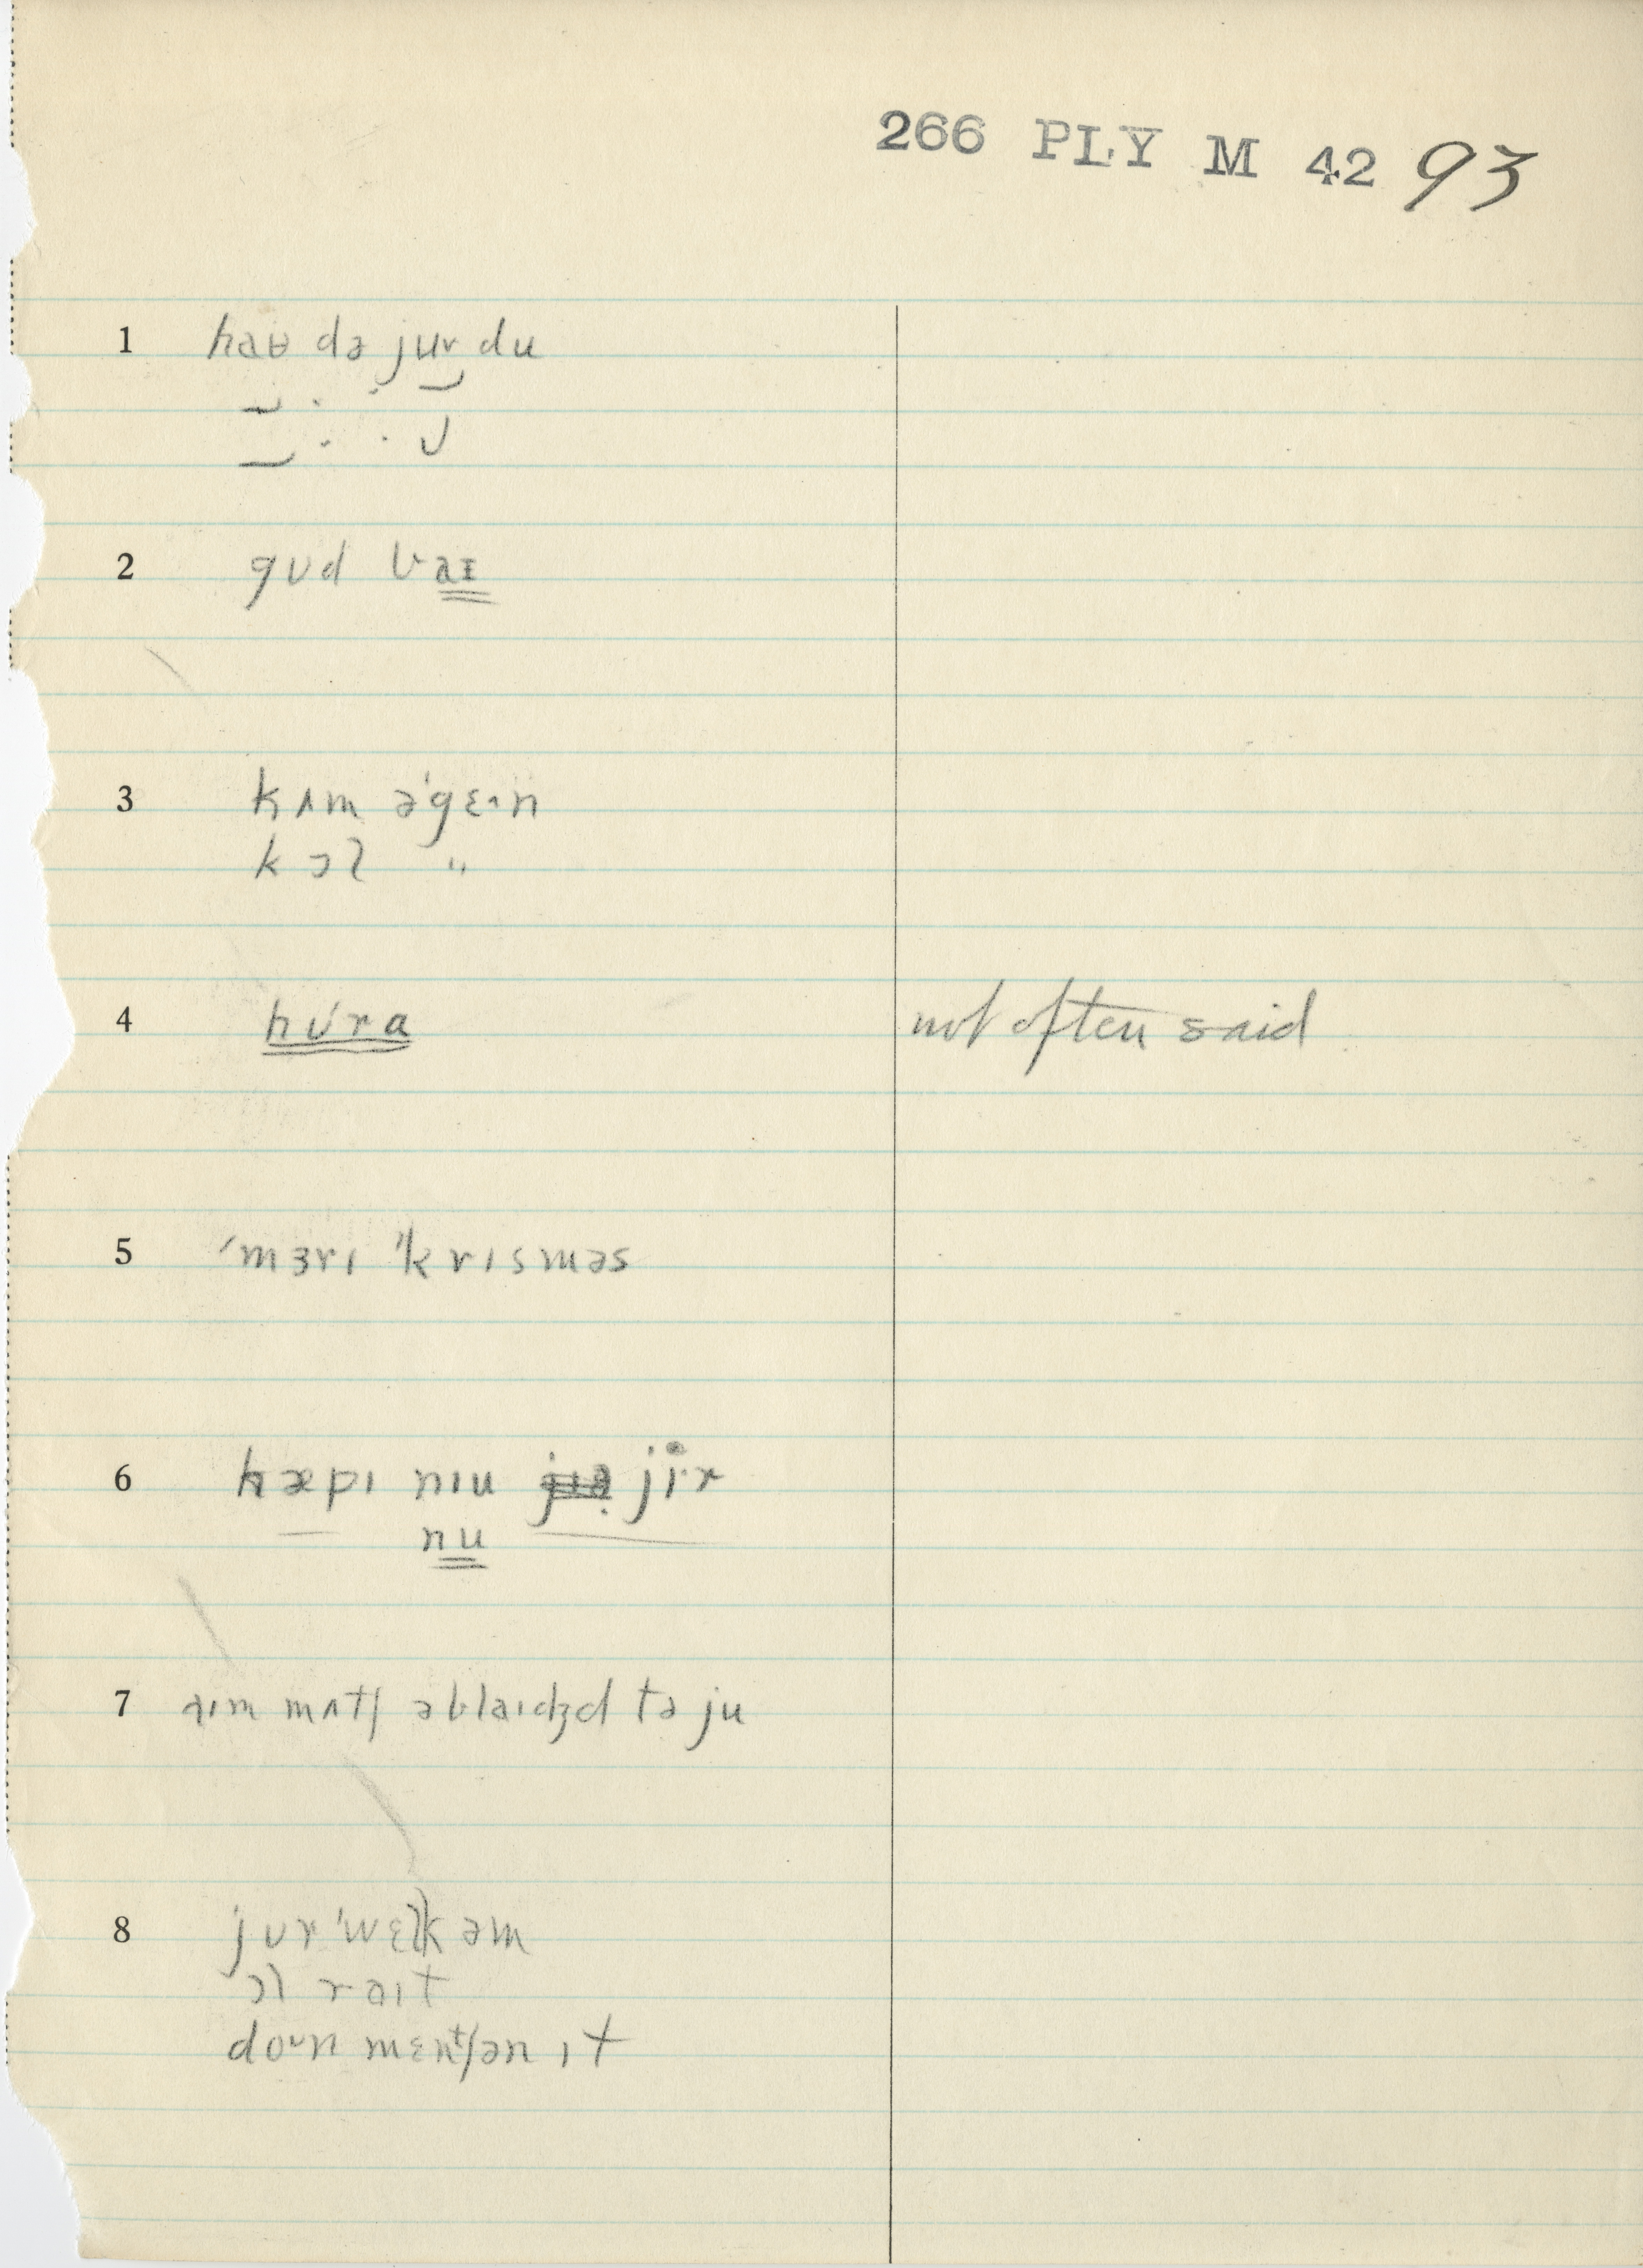 266 PLY M 42 93
1 haʉ də jʊr du
2 gʊd baɪ
3 kʌm ə'gɛɪn
kɔl "
4 hʊ'ra not often said
5 'mɜrɪ 'krɪsməs
6 hæpɪ nɪu jɪr
nu
7 aɪm mʌtʃ əblaɪdʒd tə ju
8 jʊr 'wɛlkəm
ɔl raɪt
doʊn mɛntʃən ɪt